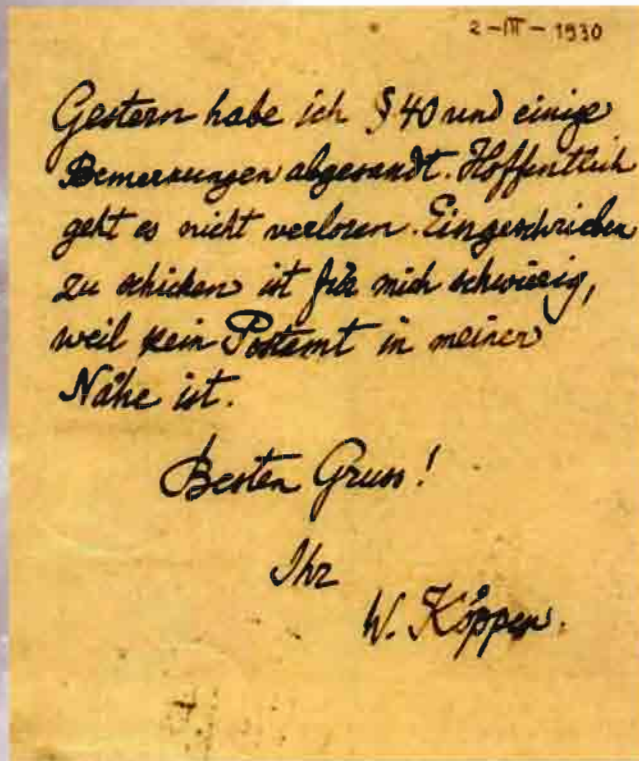 2-III-1930
Gestern habe ich § 40 und einige
Bemerkungen abgesandt. Hoffentlich
geht es nicht verloren. Eingeschrieben
zu schicken ist für mich schwierig,
weil kein Postamt in meiner
Nähe ist.
Besten Gruss!
Ihr
W. Köppen.